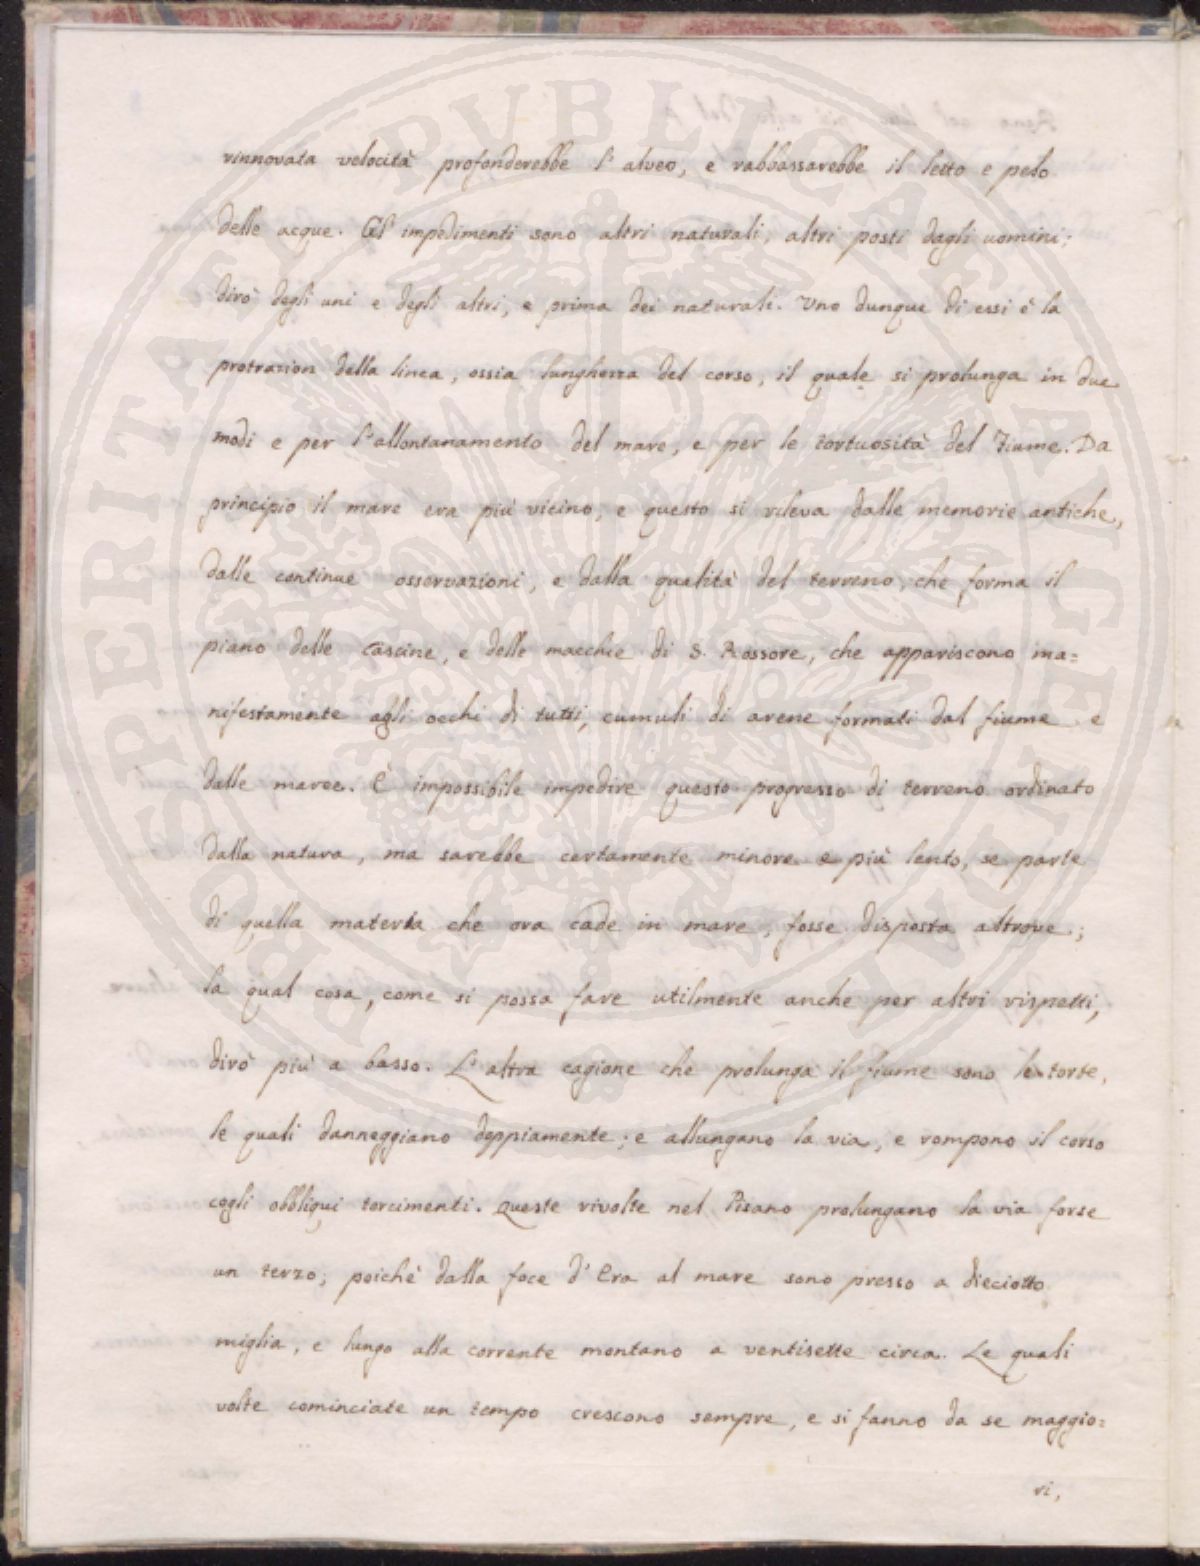 rinnovata velocità profonderebbe l'alveo, e rabbassarebbe il letto e pelo
delle acque. Gl'impedimenti sono altri naturali, altri posti dagli uomini:
dirò degli uni e degli altri, e prima dei naturali. Uno dunque di essi è la
protrazion della linea, ossia lunghezza del corso, il quale si prolunga in due
modi e per l'allontanamento del mare, e per le tortuosità del Fiume. Da
principio il mare era più vicino, e questo si rileva dalle memorie antiche,
dalle continue osservazioni, e dalla qualità del terreno, che forma il
piano delle Cascine, e delle macchie di S. Rossore, che appariscono ma=
nifestamente agli occhi di tutti, cumuli di arene formati dal fiume e
dalle maree. È impossibile impedire questo progresso di terreno ordinato
dalla natura, ma sarebbe certamente minore e più lento, se parte
di quella materia che ora cade in mare, fosse disposta altrove;
la qual cosa, come si possa fare utilmente anche per altri rispetti,
dirò più a basso. L'altra cagione che prolunga il fiume sono le torte,
le quali danneggiano doppiamente; e allungano la via, e rompono il corso
cogli obbliqui torcimenti. Queste rivolte nel Pisano prolungano la via forse
un terzo; poichè dalla foce d'Era al mare sono presso a dieciotto
miglia, e lungo alla corrente montano a ventisette circa. Le quali
volte cominciate un tempo crescono sempre, e si fanno da se maggio=
ri,
PROSPERITATI PUBLICAE AUGENDAE